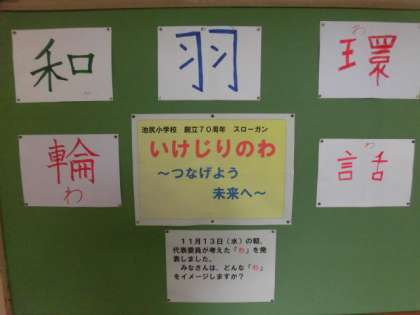 和
羽
わ
環
池尻小学校 創立70周年 スローガン
いけじりのわ
～つなげよう
未来へ～
輪
わ
わ
話
11月13日(水)の朝、
代表委員が考えた「わ」を発
表しました。
みなさんは、どんな「わ」
をイメージしますか？